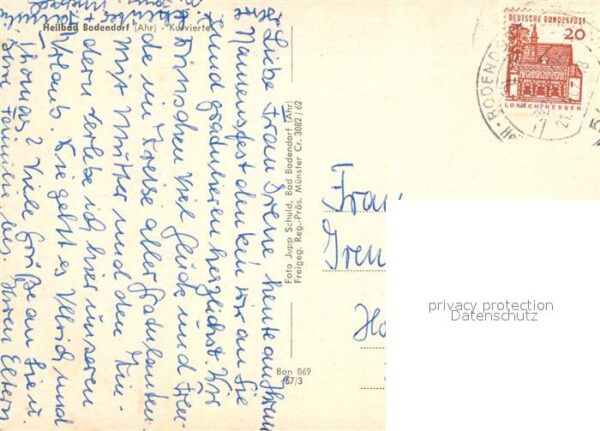 Heilbad Bodendorf (Ahr) - Kurviertel
Liebe Frau Irene, heute an Ihrem
Namensfest denken wir an Sie
und gratulieren herzlichst. Wir
wünschen viel Glück und Freu-
de im Kreise aller Gratulanten.
Mit Mutter und den Kin-
dern verlebe ich hier unseren
Urlaub. Wie geht es Ullrich und
Thomas? Viele Grüße an Sie u.
Ihre Familie bes. Ihren Eltern
Foto Jupp Schuld, Bad Bodendorf (Ahr)
Freigeg. Reg.-Präs. Münster Cr. 3082/62
Bon 069
67/3
DEUTSCHE BUNDESPOST
20
LORSCH/HESSEN
BODENDORF
Frau
Iren
Ho
privacy protection
Datenschutz